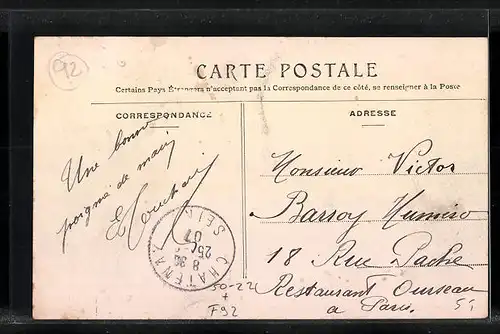 92
CARTE POSTALE
Certains Pays Étrangers n'acceptant pas la Correspondance de ce côté, se renseigner à la Poste
CORRESPONDANCE
ADRESSE
Une bonne
poignée de main
Monsieur Victor
Barroy
18 Rue Pache
Restaurant Ourseau
a Paris
CHATENAY
SEINE
8 30
25
07
50-22
+
F92